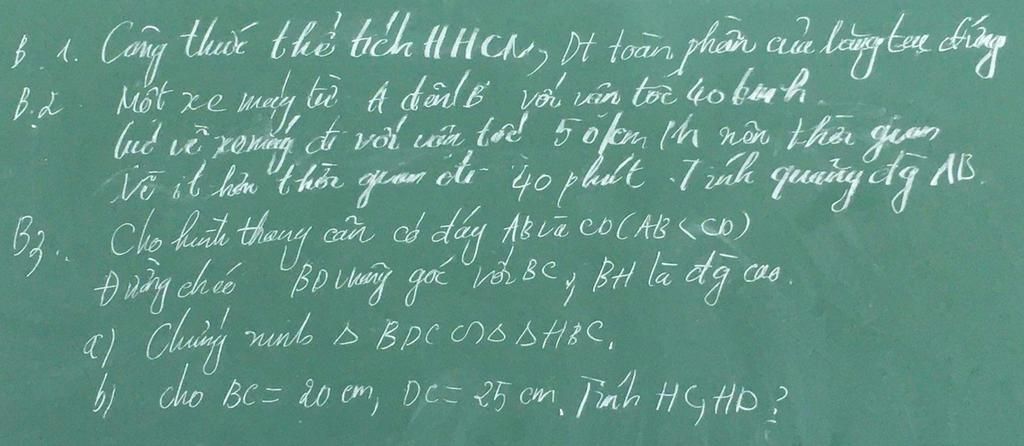 B.1. Công thức thể tích HHCN, DT toàn phần của lăng trụ đứng
B.2 Một xe máy từ A đến B với vận tốc 40km/h.
Lúc về xe máy đi với vận tốc 50km/h nên thời gian
Về ít hơn thời gian đi 40 phút. Tính quãng đg AB.
B3. Cho hình thang cân có đáy AB và CD (AB < CD)
Đường chéo BD vuông góc với BC, BH là đg cao.
a) Chứng minh Δ BDC ∽ Δ HBC.
b) cho BC = 20 cm, DC = 25 cm. Tính HC, HD?